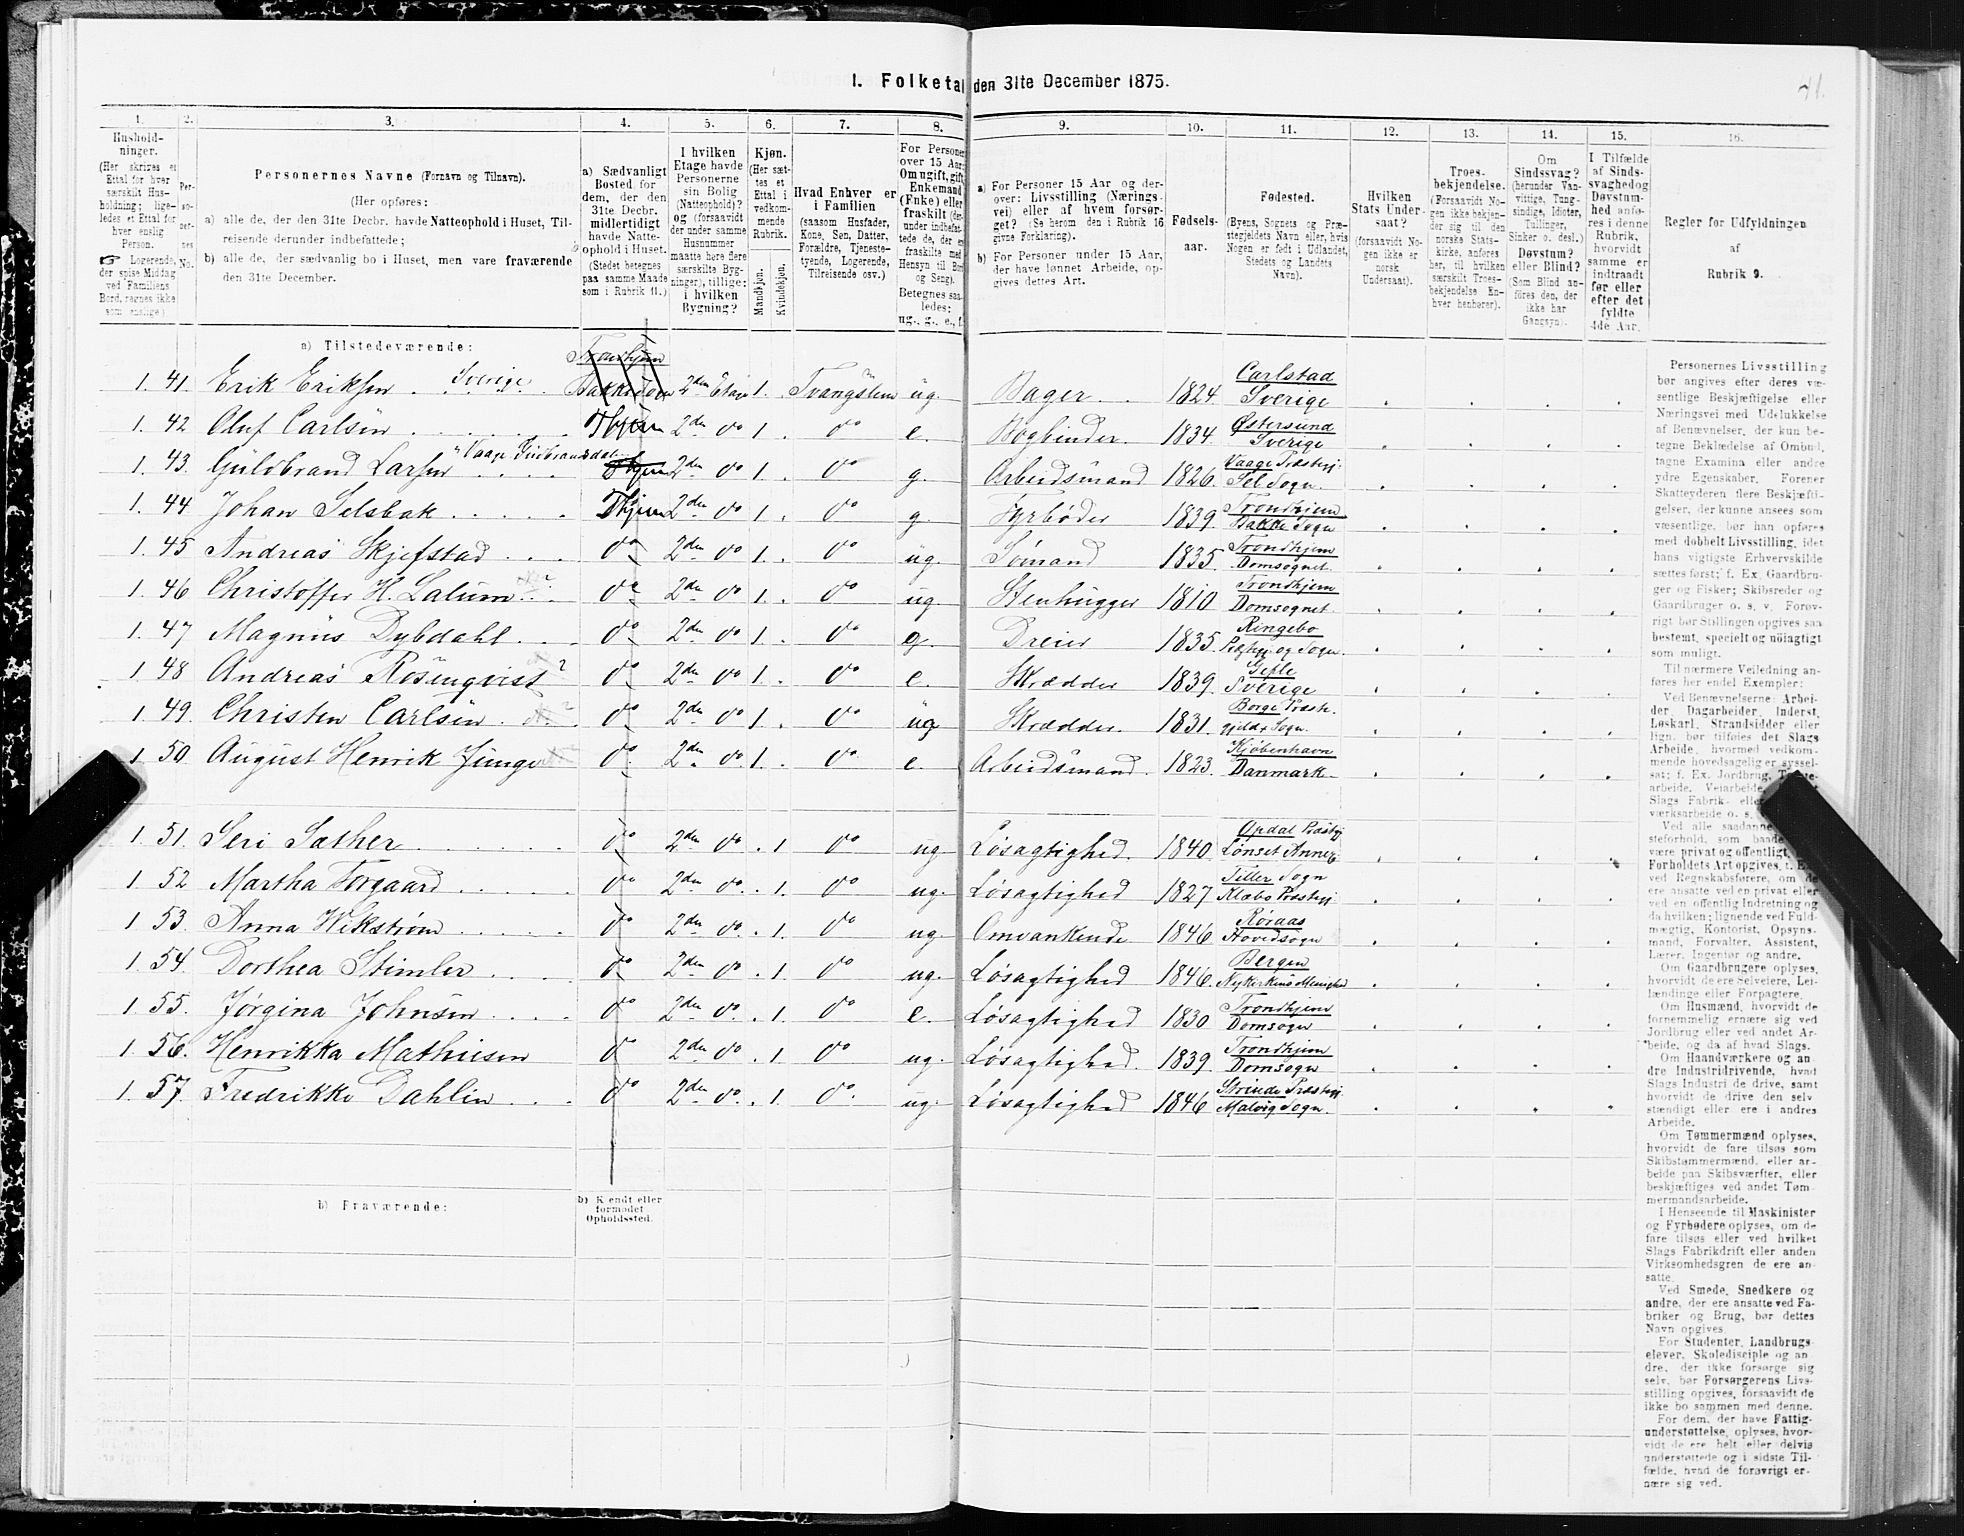 1. Folketal den 31te December 1875.
41.
1. 2. 3. 4. 5. 6. 7. 8. 9. 10. 11. 12. 13. 14. 15. 16.
Husholdninger.
(Her skrives et
Ettal for hver
særskilt Husholdning;
ligeledes et Ettal for
hver enslig
Person.
☞ Logerende,
der spise Middag
ved Familiens
Bord, regnes ikke
som enslige.)
Personernes No.
Personernes Navne (Fornavn og Tilnavn).
(Her opføres:
a) alle de, der den 31te Decbr. havde Natteophold i Huset, Tilreisende derunder indbefattede;
b) alle de, der sædvanlig bo i Huset, men vare fraværende
den 31te December.
a) Sædvanligt
Bosted for
dem, der den
31te Decbr.
midlertidigt
havde Natteophold i Huset.
(Stedet betegnes
paa samme Maade
som i Rubrik 11.)
I hvilken
Etage havde
Personerne
sin Bolig
(Natteophold)?
og (forsaavidt
der under samme
Husnummer
maatte høre flere
særskilte Bygninger), tillige:
i hvilken
Bygning?
Kjøn.
(Her sættes et
Ettal i
vedkommende
Rubrik.
Mandkjøn.
Kvindekjøn.
Hvad Enhver er
i Familien
(saasom Husfader,
Kone, Søn, Datter,
Forældre, Tjenestetyende, Logerende,
Tilreisende osv.)
For Personer
over 15 Aar:
Om ugift, gift
Enkemand
(Enke) eller
fraskilt
Betegnes saaledes:
ug., g., e., f.
a) For Personer 15 Aar og derover: Livsstilling (Næringsvei) eller af hvem forsørget? (Se herom den i Rubrik 16
givne Forklaring).
b) For Personer under 15 Aar,
der have lønnet Arbeide, opgives dettes Art.
Fødselsaar.
Fødested.
(Byens, Sognets og Præstegjeldets Navn eller, hvis
Nogen er født i Udlandet,
Stedets og Landets
Navn).
Hvilken
Stats Undersaat?
(forsaavidt Nogen ikke er
norsk
Undersaat).
Troesbekjendelse.
(Forsaavidt Nogen ikke bekjender sig til den
norske Statskirke, anføres
her, til hvilken
særskilt Troesbekjendelse Enhver henhører).
Om
Sindssvag?
(herunder Vanvittige, Tungsindige, Idioter,
Tullinger,
Sinker o. desl.)
Døvstum?
eller Blind?
(Som Blind anføres den, der
ikke har
Gangsyn).
I Tilfælde
af Sindssvaghed og
Døvstumhed anføres i denne
Rubrik,
hvorvidt
samme er
indtraadt
før eller
efter det
fyldte
4de Aar.
Regler for Udfyldningen
af
Rubrik 9.
a) Tilstedeværende:
Trondhjem
1. 41. Erik Eriksen . Sverige. Bakke Sogn 2den Etage 1. Tvangslem ug. Bager . 1824. Carlstad Sverige
1. 42 Oluf Carlsen Thjem 2den do 1. do e. Bogbinder. 1834. Østersund Sverige
1. 43. Guldbrand Larsen Vaage Gudbrandsdal Thjem 2den do 1. do g. Arbeidsmand 1826. Vaage Præstegj. Sel Sogn.
1. 44 Johan Selsbak Thjem 2den do 1. do g. Fyrbøder 1839. Trondhjem Bakke Sogn
1. 45 Andreas Skjefstad do 2den do 1. do ug. Sømand 1835. Trondhjem Domsognet.
1. 46 Christoffer H. Lalum ? do 2den do 1. do ug. Stenhugger 1810 Trondhjem Domsognet.
1. 47 Magnus Dybdahl do 2den do 1. do g. Dreier 1835. Ringebo Præstegj og Sogn.
1. 48 Andreas Rosenqvist ? do 2den do 1. do e. Skrædder 1839. Gefle Sverige
1. 49. Christen Carlsen. ? do 2den do 1. do ug Skrædder. 1831. Borge Præstegjeld & Sogn.
1. 50 August Henrik Junge do 2den do. 1. do e. Arbeidsmand. 1823. Kjøbenhavn Danmark.
1. 51. Seri Sæther do 2den do . 1. do ug Løsagtighed. 1840. Opdal Præstegj Lønset Annex
1. 52 Martha Forgaard do 2den do . 1. do ug. Løsagtighed 1827 Tiller Sogn Klæbo Præstegj
1. 53. Anna Wikstrøm do 2den do. . 1. do ug. Omvankende 1846 Røraas Hovedsogn
1. 54. Dorthea Stimler do 2den do . 1. do ug. Løsagtighed 1846. Bergen Nykirkens Menighed
1. 55. Jørgina Johnsen do 2den do. . 1. do e. Løsagtighed 1830 Trondhjem Domsogn
1. 56. Henrikka Mathiesen do 2den do. . 1. do ug. Løsagtighed. 1839. Trondhjem Domsogn
1. 57. Fredrikke Dahlin do 2den do. . 1. do. ug. Løsagtighed 1846 Strinde Præstegj. Malvig Sogn.
b) Fraværende:
b) Kendt eller
formodet
Opholdssted.
Personernes Livsstilling
bør angives efter deres væsentlige Beskjæftigelse eller
Næringsvei med Udelukkelse
af Benævnelser, der kun betegne Beklædelse af Ombud,
tagne Examina eller andre
ydre Egenskaber. Forener
Skatteyderen flere Beskjæftigelser, der kunne ansees som
væsentlige, bør han opføres
med dobbelt Livsstilling, idet
hans vigtigste Erhvervskilde
sættes først; f. Ex. Gaardbruger og Fisker; Skibsreder og
Gaardbruger o. s. v. Forøvrigt bør Stillingen opgives saa
bestemt, specielt og nöiagtigt
som muligt.
Til nærmere Veiledning anføres her endel Exempler:
Ved Benævnelserne: Arbeider, Dagarbeider, Inderst,
Løskarl, Strandsidder eller
lign. bør tilføies det Slags
Arbeide, hvormed vedkommende hovedsagelig er sysselsat; f. Ex. Jordbrug,
arbeide, Veiarbeide,
Slags Fabrik- eller
værksarbeide o. s.
Ved alle saadanne
steforhold, som baade
være privat og offentligt,
Forholdets Art opgives,
ved Regnskabsførere, om de
ere ansatte ved en privat eller
ved en offentlig Indretning og
da hvilken; lignende ved Fuldmægtig, Kontorist, Opsynsmand, Forvalter, Assistent,
Lærer, Ingeniør og andre.
Om Gaardbrugere oplyses,
hvorvidt de ere Selveiere, Leilændinge eller Forpagtere.
Om Husmænd, hvorvidt de
fornemmelig ernære sig ved
Jordbrug eller ved andet Arbeide, og da af hvad Slags.
Om Haandværkere og andre Industridrivende, hvad
Slags Industri de drive, samt
hvorvidt de drive den selvstændigt eller ere i andres
Arbeide.
Om Tømmermænd oplyses,
hvorvidt de fare tilsøs som
Skibstømmermænd, eller arbeide paa Skibsværfter, eller
beskjæftiges ved andet Tømmermandsarbeide.
I Henseende til Maskinister
og Fyrbødere oplyses, om de
fare tilsøs eller ved hvilket
Slags Fabrikdrift eller anden
Virksomhedsgren de ere ansatte.
Ved Smede, Snedkere og
andre, der ere ansatte ved Fabriker og Brug, bør dettes
Navn opgives
For Studenter, Landbrugselever, Skoledisciple og andre, der ikke forsørge sig
selv, bør Forsørgerens Livsstilling opgives, forsaavidt de
ikke bo sammen med denne.
For dem, der have Fattigunderstøttelse, oplyses, hvorvidt de ere helt eller delvis
understøttede og i sidste Tilfælde, hvad de forøvrigt ernære sig ved.